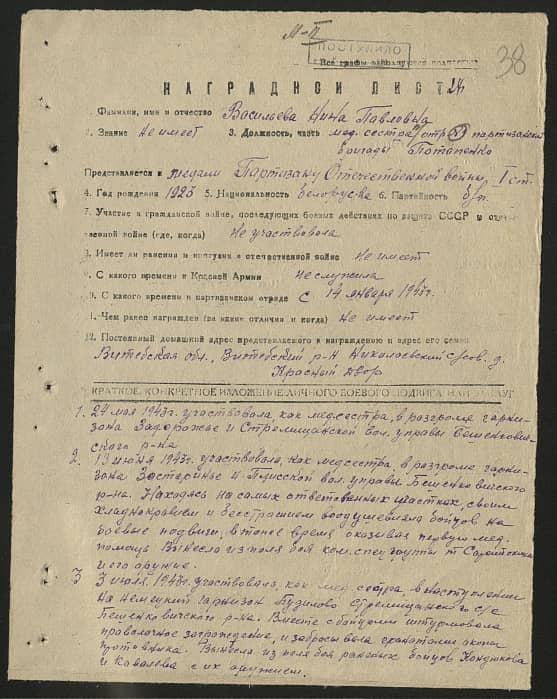 М-II
ПОСТУПИЛО
38
Все графы заполнуются полностью
НАГРАДНОЙ ЛИСТ 24
1. Фамилия, имя и отчество Васильева Нина Павловна
2. Звание не имеет 3. Должность, часть мед. сестра отр. партизанской
бригады Потапенко
Представляется к медали Партизану Отечественной войны, I ст.
4. Год рождения 1923 5. Национальность белоруска 6. Партийность б/п.
7. Участие в гражданской войне, последующих боевых действиях по защите СССР и отече-
венной войне (где, когда) не участвовала
8. Имеет ли ранения и контузии в отечественной войне не имеет
9. С какого времени в Красной Армии не служила
10. С какого времени в партизанском отряде с 14 января 1943г.
11. Чем ранее награжден (за какие отличия и когда) не имеет
12. Постоянный домашний адрес представляемого к награждению и адрес его семьи
Витебская обл., Витебский р-н Николаевский с/сов. д.
Красный Двор
КРАТКОЕ, КОНКРЕТНОЕ ИЗЛОЖЕНИЕ ЛИЧНОГО БОЕВОГО ПОДВИГА ИЛИ ЗАСЛУГ
1. 24 мая 1943г. участвовала, как медсестра, в разгроме гарни-
зона Задорожье и Стрелищанской вол. управы Бешенкович-
ского р-на.
2. 13 июня 1943г. участвовала, как медсестра, в разгроме гарни-
зона Застаринье и Плисской вол. управы Бешенковичского
р-на. Находясь на самых ответственных участках, своим
хладнокровием и бесстрашием воодушевляла бойцов на
боевые подвиги, в тоже время оказывая первую мед.
помощь. Вынесла из поля боя ком. спецгруппы т.
и его оружие.
3. 3 июля 1943г. участвовала, как мед. сестра, в наступлении
на немецкий гарнизон Пузилово Стрелищанского с/с
Бешенковичского р-на. Вместе с бойцами штурмовала
проволочное заграждение, и забросывала гранатами окопы
противника. Вынесла из поля боя раненых бойцов Кондикова
и Ковалева с их оружием.